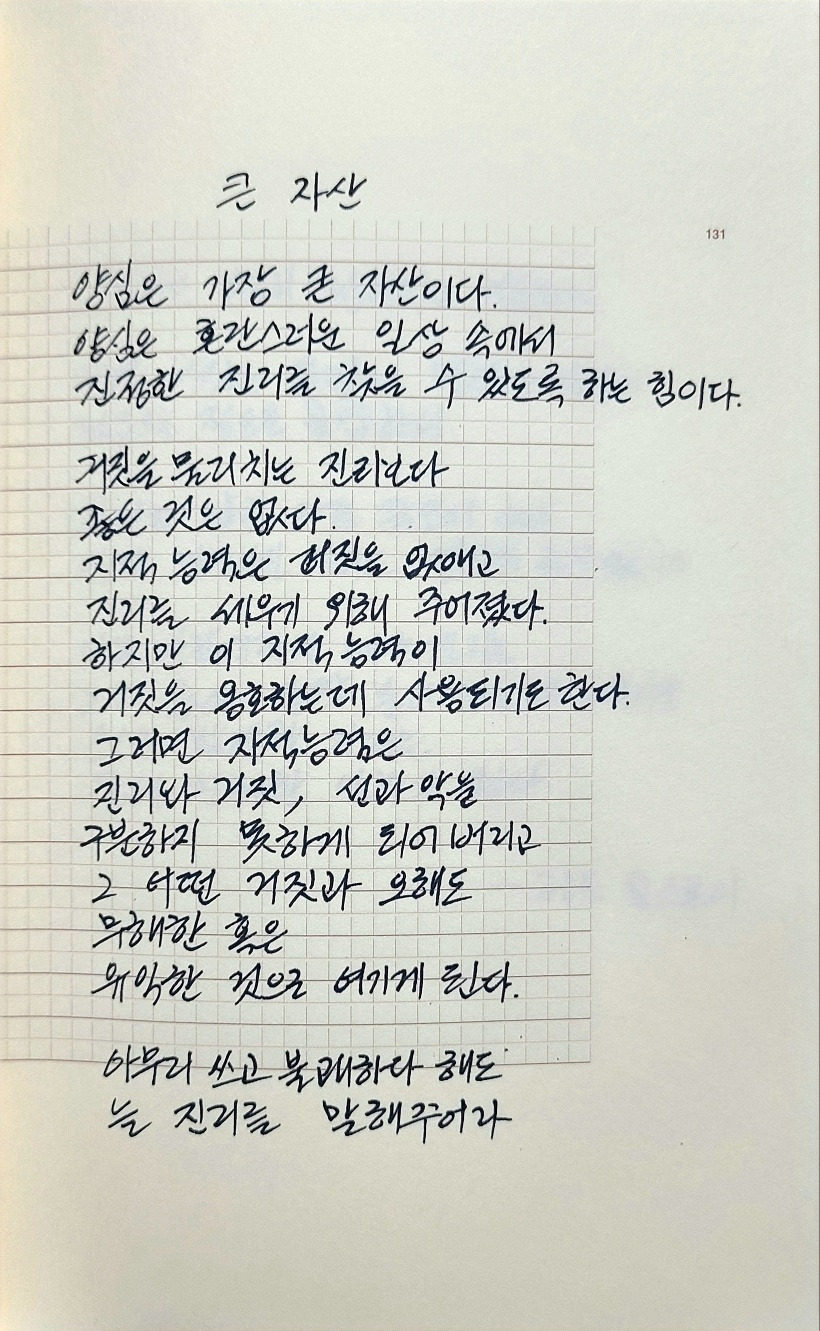 큰 자산
131
양심은 가장 큰 자산이다.
양심은 혼란스러운 일상 속에서
진정한 진리를 찾을 수 있도록 하는 힘이다.
거짓을 물리치는 진리보다
좋은 것은 없다.
지적 능력은 거짓을 없애고
진리를 세우기 위해 주어졌다.
하지만 이 지적 능력이
거짓을 옹호하는데 사용되기도 한다.
그러면 지적능력은
진리와 거짓, 선과 악을
구분하지 못하게 되어버리고
그 어떤 거짓과 오해도
무해한 혹은
유익한 것으로 여기게 된다.
아무리 쓰고 불쾌하다 해도
늘 진리를 말해주어라